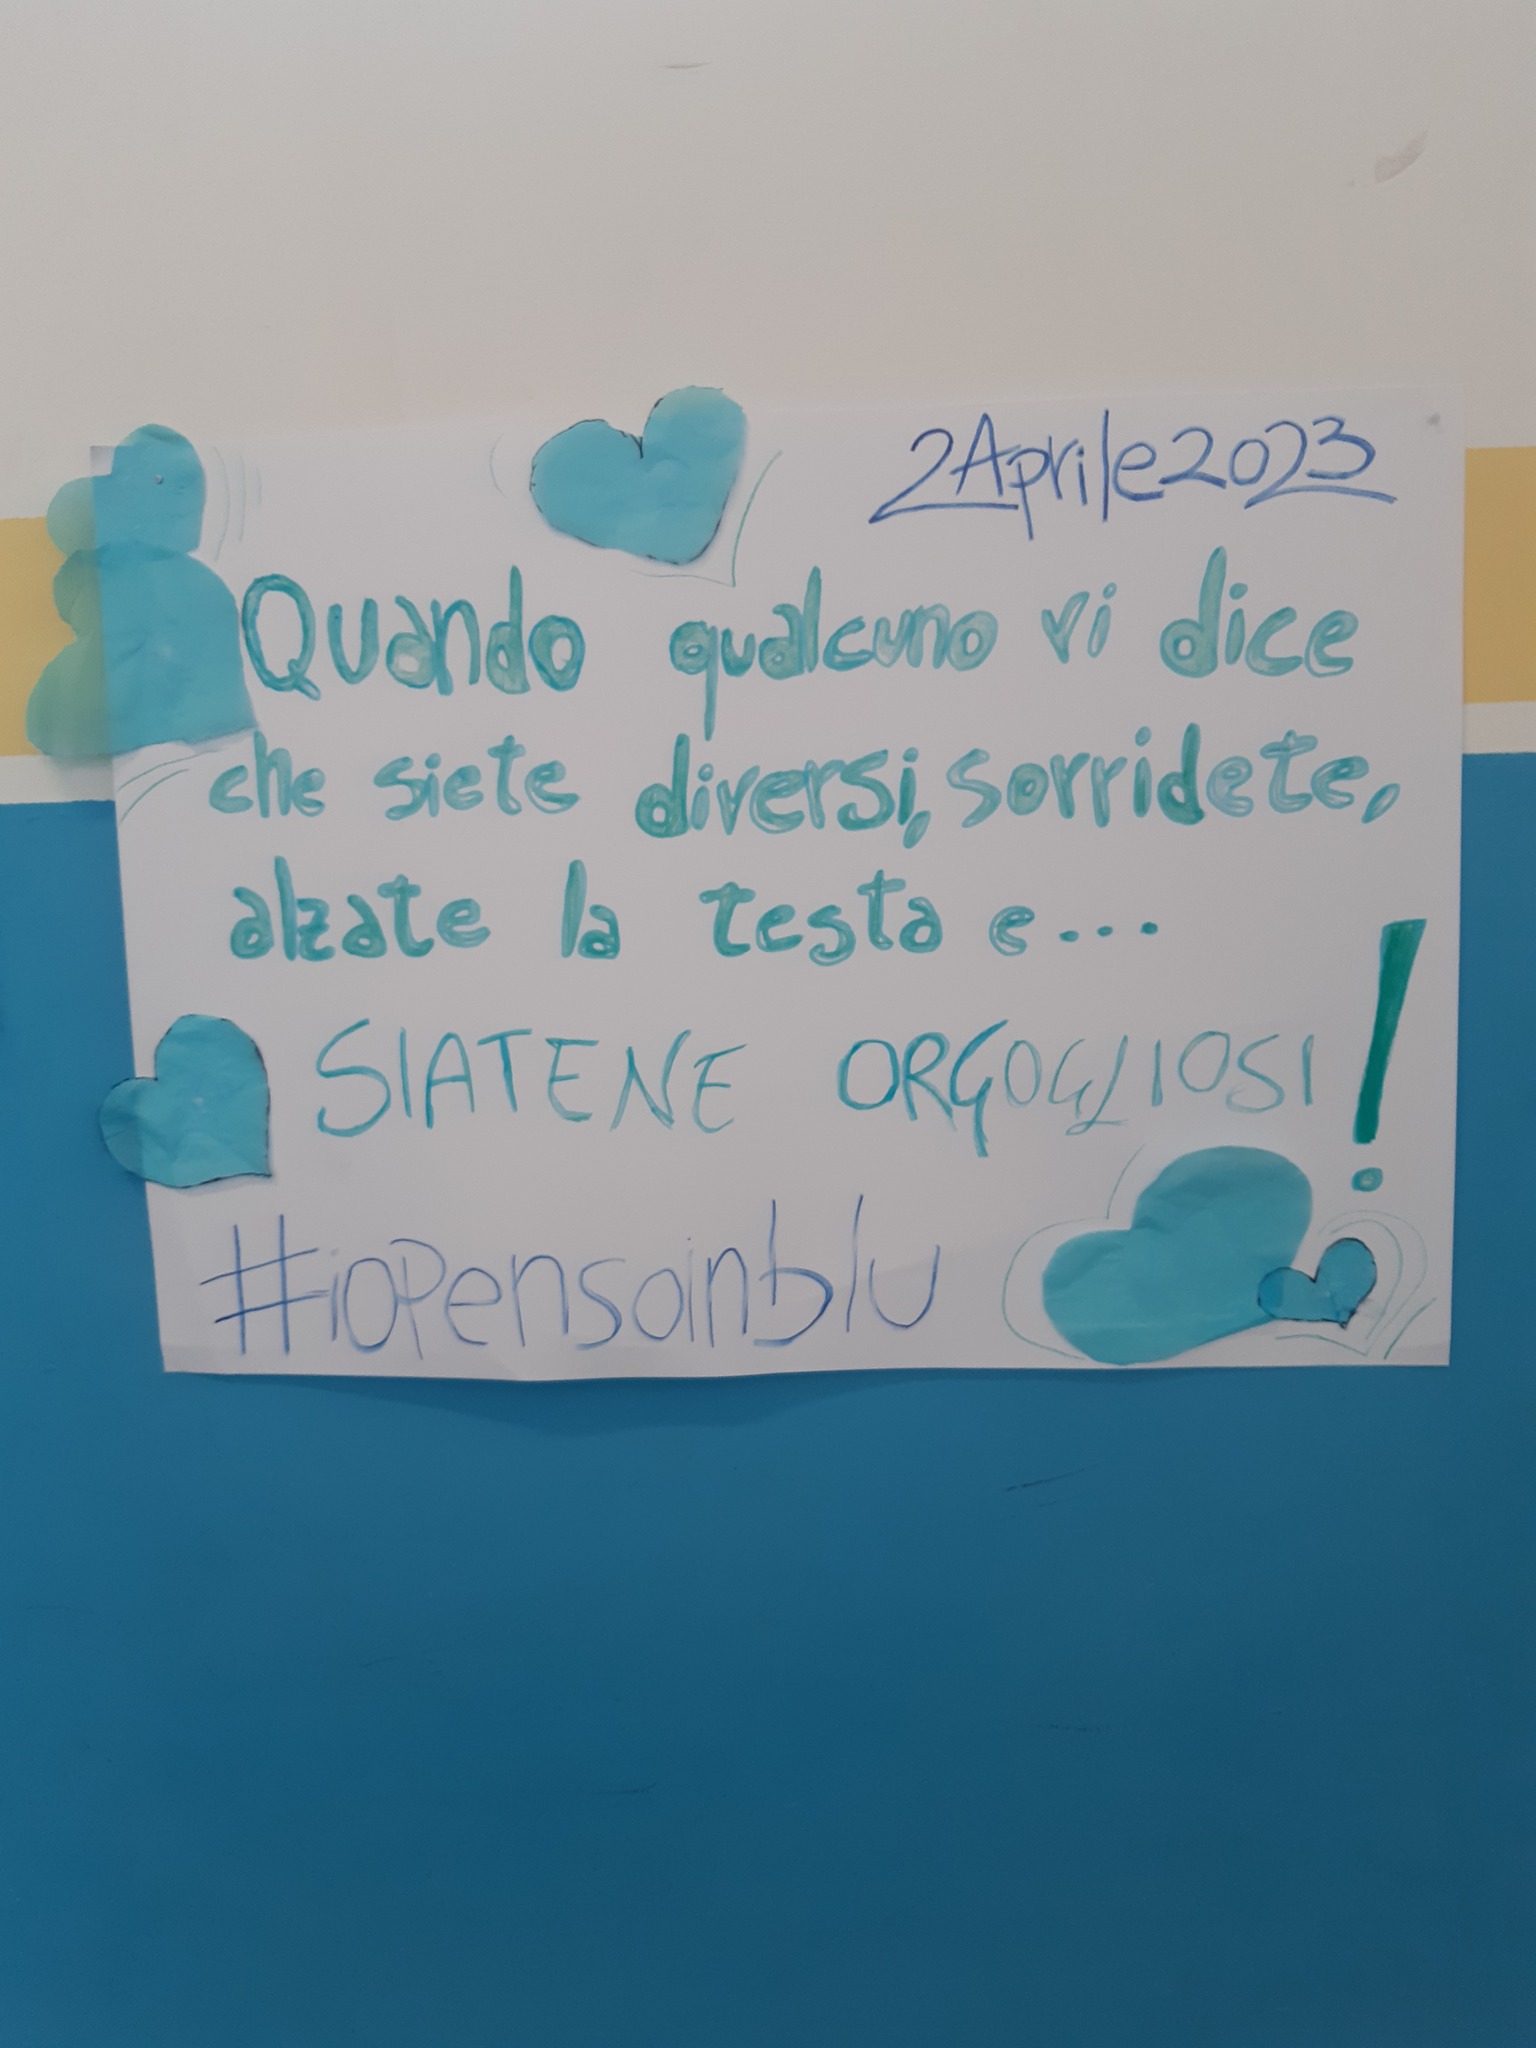 2Aprile2023
Quando qualcuno vi dice
che siete diversi, sorridete,
alzate la testa e...
SIATENE ORGOGLIOSI!
#ioPensoinblu